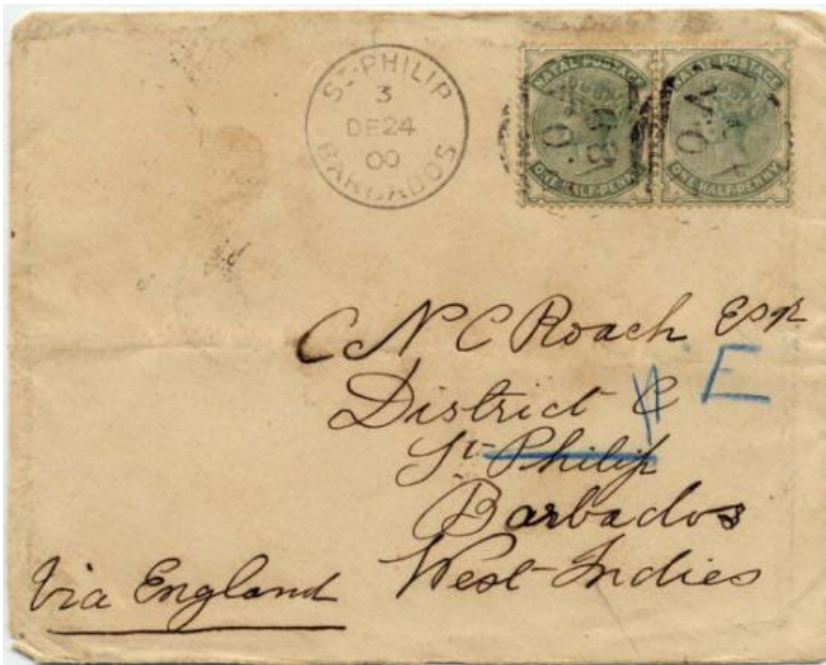 ST. PHILIP
3
DE 24
00
BARBADOS
NATAL POSTAGE
ONE HALF-PENNY
NATAL POSTAGE
ONE HALF-PENNY
C N C Roach Esqr
E
District C
St Philip
Barbados
West Indies
Via England